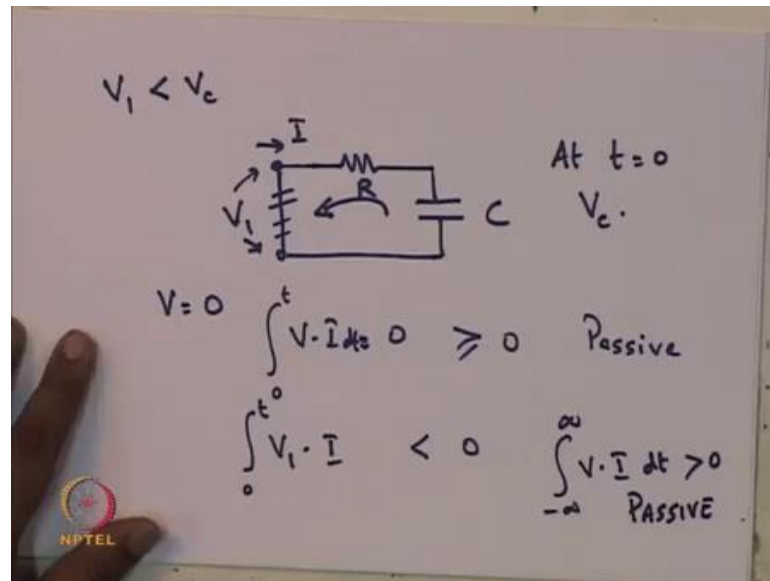 V₁ < V_c
I
At t=0
R
V₁
C
V_c.
V=0 ∫₀ᵗ V·I dt= 0 ≥ 0 Passive
∫₀ᵗ V₁·I < 0 ∫_{-∞}^{∞} V·I dt >0
PASSIVE
NPTEL